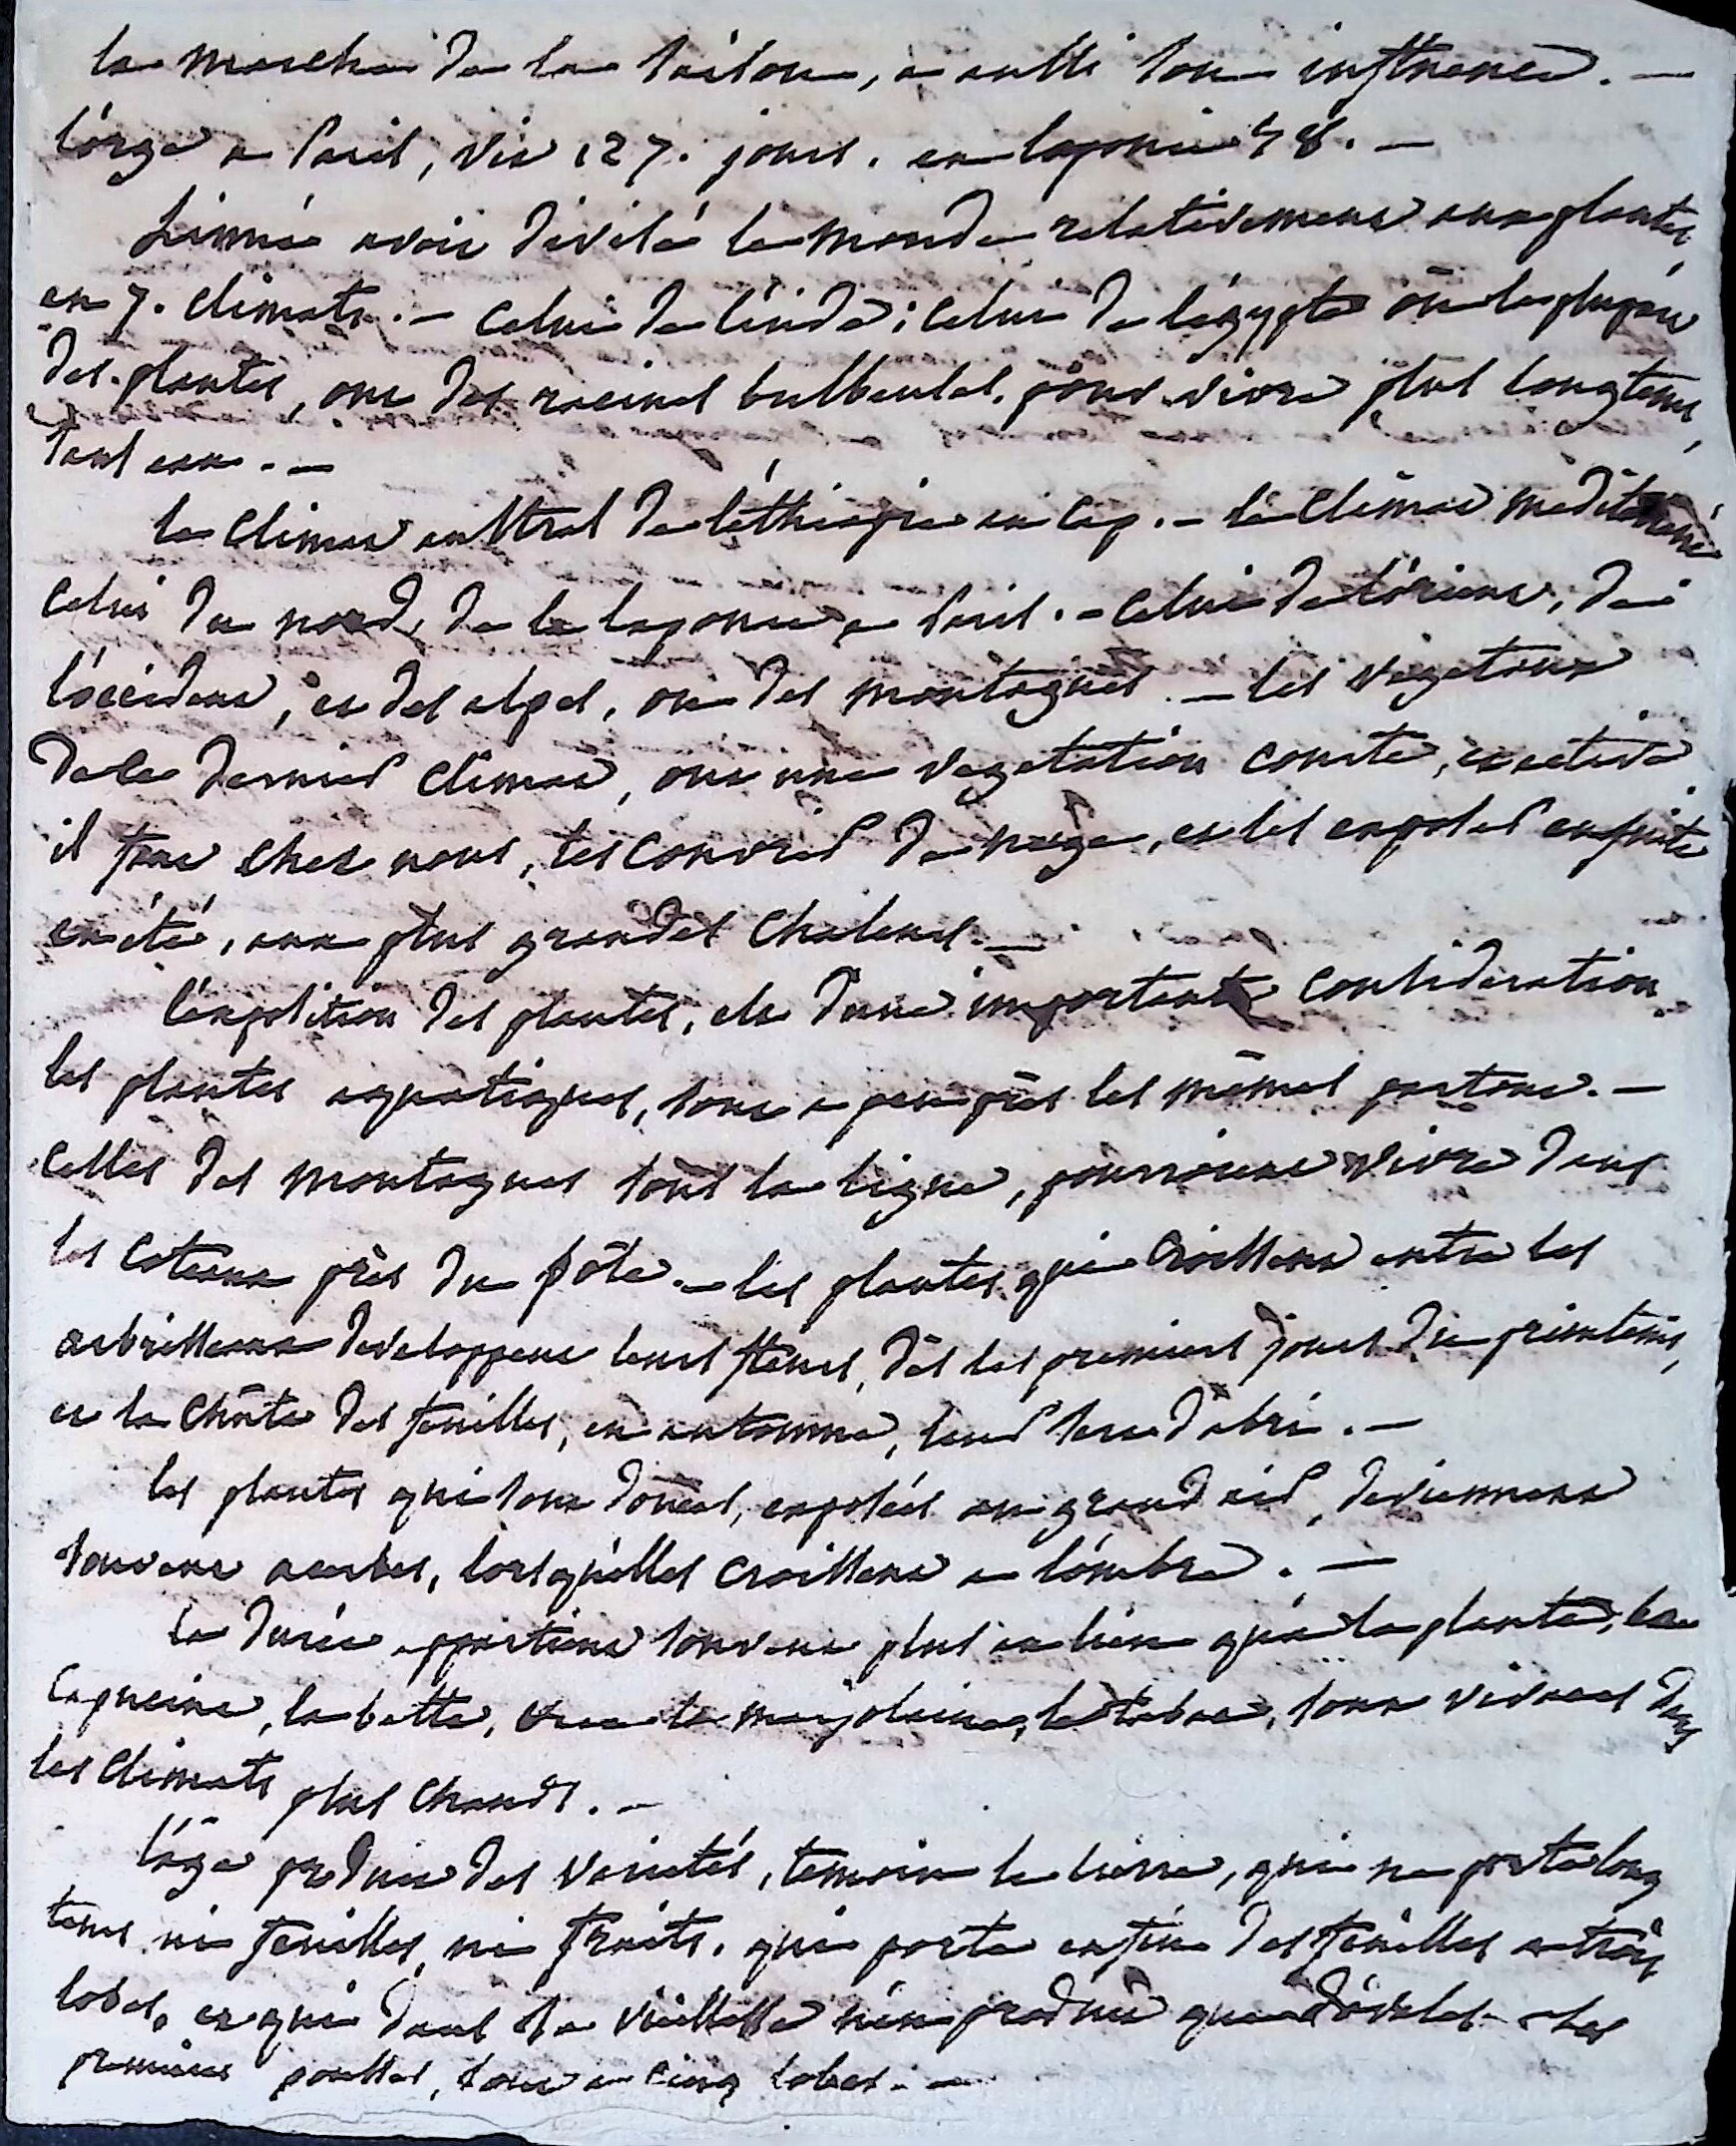 la marche de la saison, a aussi son influence. —
l'orge a Paris, vit 127. jours. en laponie 58. —
Linnée avoit divisé le monde relativement aux plantes,
en 7. climats. — celui de l'inde ; celui de l'égypte où la plupart
des plantes, ont des racines bulbeuses, pour vivre plus longtems,
sans eau. —
le climat austral de l'éthiopie au cap. — le climat mediterrané
celui du nord, de la laponie a Paris. — celui de l'orient, de
l'occident, et des alpes, ou des montagnes. — les vegetaux
de ce dernier climat, ont une vegetation courte, et active
il faut chez nous, les couvrir de neige, et les exposer ensuite
en été, aux plus grandes chaleurs. —
l'exposition des plantes, est d'une importante consideration
les plantes aquatiques, sont a peu près les mêmes partout. —
celles des montagnes sous la ligne, pourroient vivre dans
les coteaux près du pôle. — les plantes qui croissent entre les
arbrisseaux developpent leurs fleurs, dès les premiers jours du printems,
et la chûte des feuilles, en automne, leur sert d'abri. —
les plantes qui sont douces, exposées au grand air, deviennent
souvent acerbes, lorsqu'elles croissent a l'ombre. —
la durée appartient souvent plus au lieu qu'a la plante, la
capucine, la bette, la marjolaine, le tabac, sont vivaces dans
les climats plus chauds. —
l'âge produit des varietés, temoin le lierre, qui ne porte long
tems ni feuilles, ni fruits. qui porte enfin des feuilles a trois
lobes, et qui dans sa vieillesse n'en produit que d'ovales — les
premieres pousses, sont a cinq lobes. —